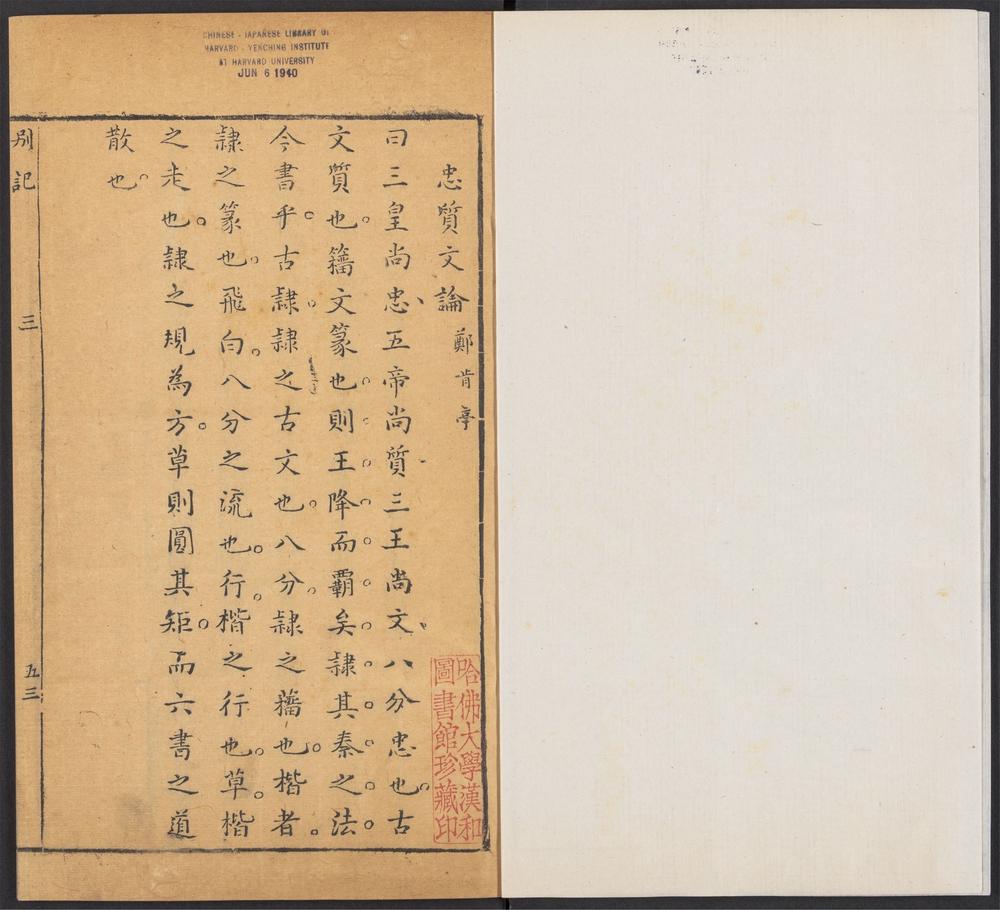 CHINESE - JAPANESE LIBRARY OF
HARVARD - YENCHING INSTITUTE
AT HARVARD UNIVERSITY
JUN 6 1940
忠質文論 鄭肯亭
曰三皇尚忠五帝尚質三王尚文八分忠也古
文質也籀文篆也則王降而霸矣隷其秦之法
今書乎古隷隷之古文也八分隷之籀也楷者
隷之篆也飛白八分之流也行楷之行也草楷
之走也隷之規為方草則圓其矩而六書之道
散也
別記
三
五三
哈佛大學漢和
圖書館珍藏印